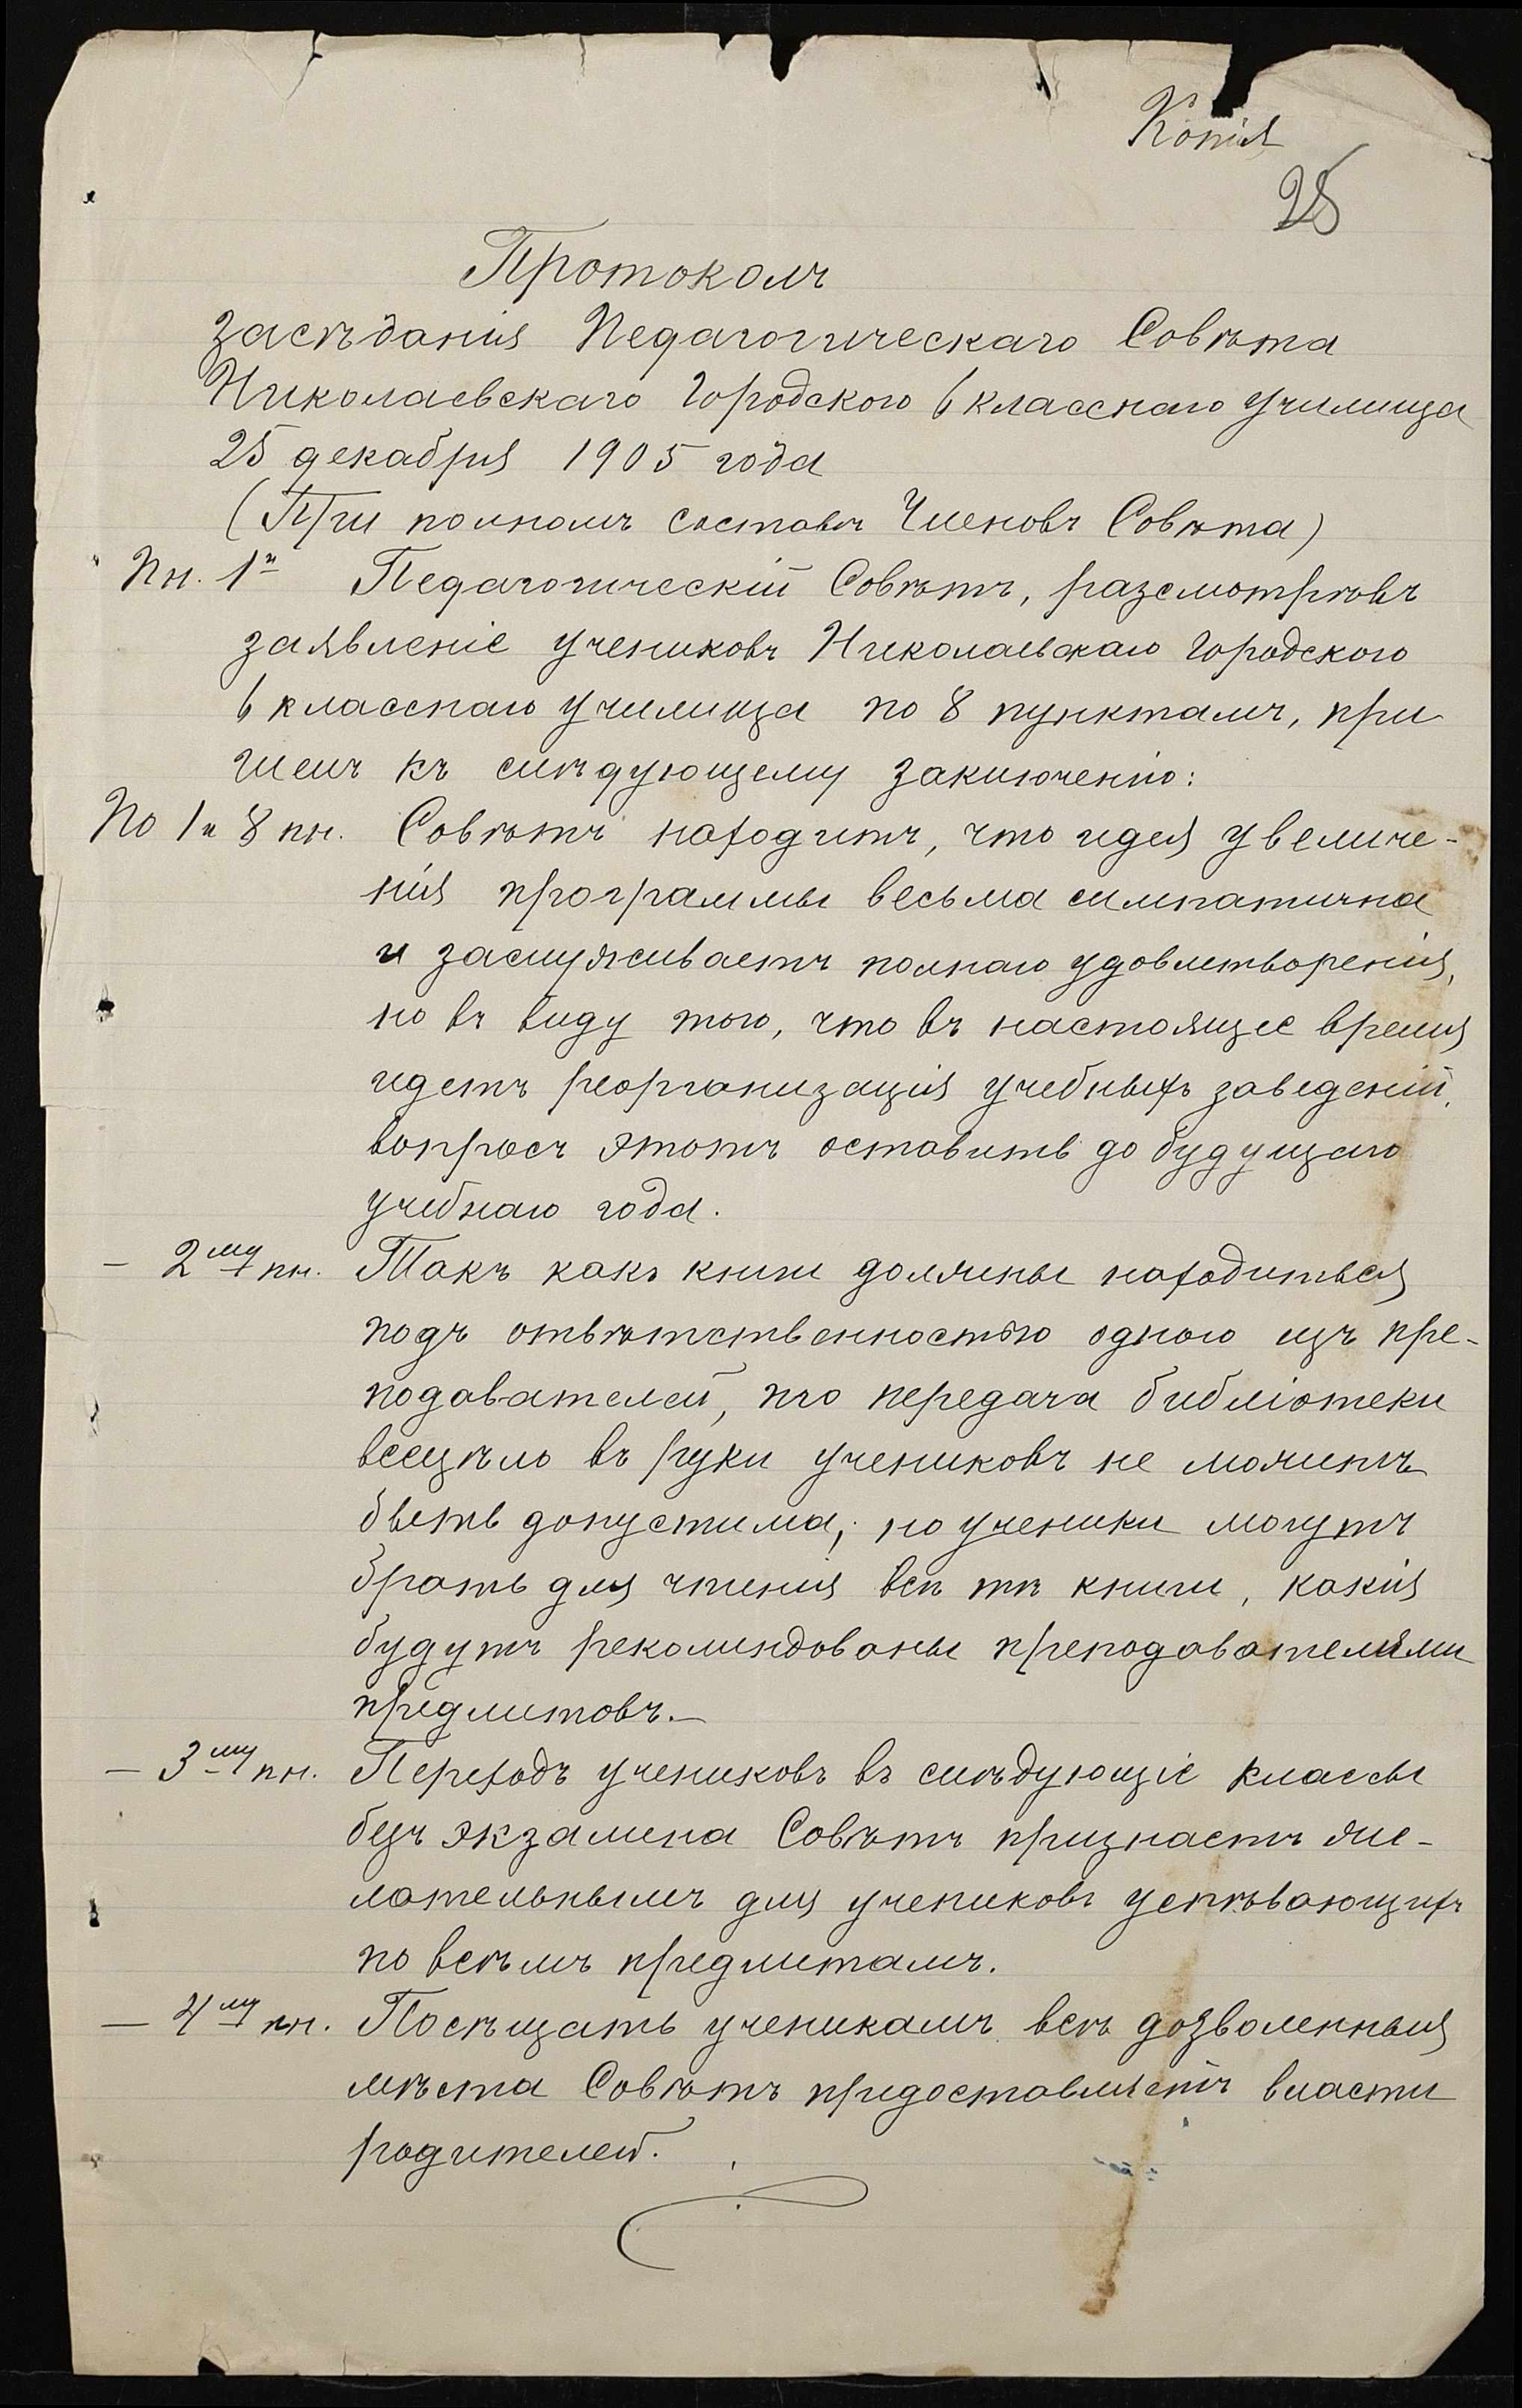 Копія
25
Протоколъ
засѣданія Педагогическаго Совѣта
Николаевскаго Городского 6 класснаго училища
25 декабря 1905 года
(При полномъ составѣ Членовъ Совѣта)
Пн. 1й Педагогическій Совѣтъ, разсмотрѣвъ
заявленіе учениковъ Николаевскаго Городского
6 класснаго училища по 8 пунктамъ, при
шелъ къ слѣдующему заключенію:
По 1 и 8 пн. Совѣтъ находитъ, что идея увеличе-
нія программы весьма симпатична
и заслуживаетъ полнаго удовлетворенія,
но въ виду того, что въ настоящее время
идетъ реорганизація учебныхъ заведеній,
вопросъ этотъ оставить до будущаго
учебнаго года.
— 2му пн. Такъ какъ книги должны находиться
подъ отвѣтственностью одного изъ пре-
подавателей, то передача библіотеки
всецѣло въ руки учениковъ не можетъ
быть допустима; но ученики могутъ
брать для чтенія всѣ тѣ книги, какія
будутъ рекомендованы преподавателями
предметовъ.—
— 3му пн. Переходъ учениковъ въ слѣдующіе классы
безъ экзамена Совѣтъ признаетъ же-
лательнымъ для учениковъ успѣвающихъ
по всѣмъ предметамъ.
— 4му пн. Посѣщать ученикамъ всѣ дозволенныя
мѣста Совѣтъ предоставляетъ власти
родителей.